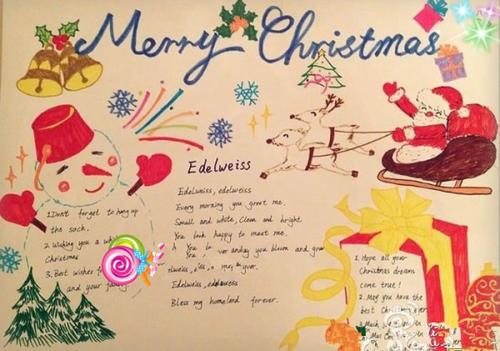 Merry Christmas
Edelweiss
Edelweiss, edelweiss
Every morning you greet me.
Small and white, Clean and bright
You look happy to meet me.
may you bloom and grow
Edelweiss, edelweiss
Bless my homeland forever.
1. Don't forget to hang up
the sock.
2. Wishing you a
Christmas
3. Best wishes
and your
1. Hope all your
Christmas dream
come true!
2. May you have the
best Christmas ever